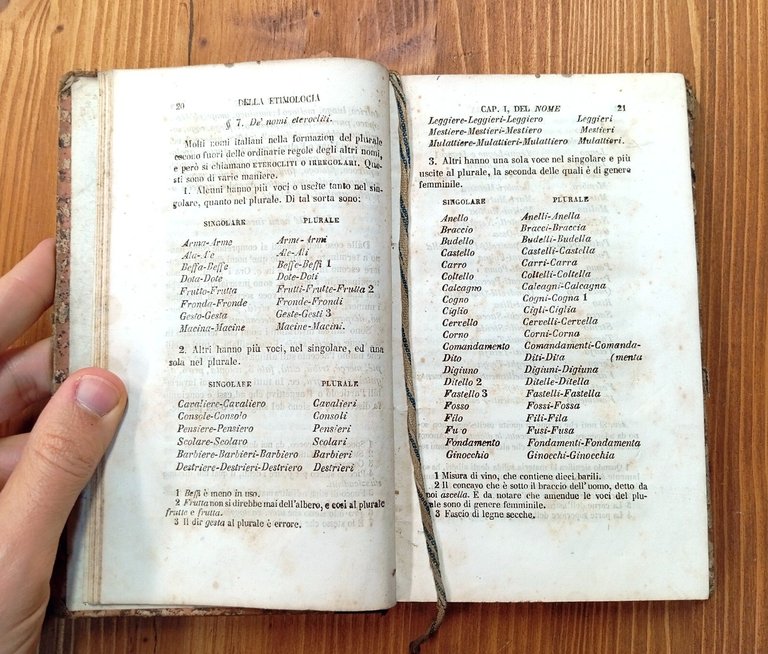 20 DELLA ETIMOLOGIA
§ 7. De' nomi eterocliti.
Molti nomi italiani nella formazion del plurale
escono fuori delle ordinarie regole degli altri nomi,
e però si chiamano ETEROCLITI O IRREGOLARI. Que-
sti sono di varie maniere.
1. Alcuni hanno più voci o uscite tanto nel sin-
golare, quanto nel plurale. Di tal sorta sono:
SINGOLARE PLURALE
Arma-Arme Arme-Armi
Ala-Ale Ale-Ali
Beffa-Beffe Beffe-Beffi 1
Dota-Dote Dote-Doti
Frutto-Frutta Frutti-Frutte-Frutta 2
Fronda-Fronde Fronde-Frondi
Gesto-Gesta Geste-Gesti 3
Macina-Macine Macine-Macini.
2. Altri hanno più voci, nel singolare, ed una
sola nel plurale.
SINGOLARE PLURALE
Cavaliere-Cavaliero Cavalieri
Console-Consolo Consoli
Pensiere-Pensiero Pensieri
Scolare-Scolaro Scolari
Barbiere-Barbieri-Barbiero Barbieri
Destriere-Destrieri-Destriero Destrieri
1 Beffi è meno in uso.
2 Frutta non si direbbe mai dell'albero, e così al plurale
frutte e frutta.
3 Il dir gesta al plurale è errore.
CAP. I, DEL NOME 21
Leggiere-Leggieri-Leggiero Leggieri
Mestiere-Mestieri-Mestiero Mestieri
Mulattiere-Mulattieri-Mulattiero Mulattieri.
3. Altri hanno una sola voce nel singolare e più
uscite al plurale, la seconda delle quali è di genere
femminile.
SINGOLARE PLURALE
Anello Anelli-Anella
Braccio Bracci-Braccia
Budello Budelli-Budella
Castello Castelli-Castella
Carro Carri-Carra
Coltello Coltelli-Coltella
Calcagno Calcagni-Calcagna
Cogno Cogni-Cogna 1
Ciglio Cigli-Ciglia
Cervello Cervelli-Cervella
Corno Corni-Corna
Comandamento Comandamenti-Comanda-
Dito Diti-Dita (menta
Digiuno Digiuni-Digiuna
Ditello 2 Ditelle-Ditella
Fastello 3 Fastelli-Fastella
Fosso Fossi-Fossa
Filo Fili-Fila
Fuso Fusi-Fusa
Fondamento Fondamenti-Fondamenta
Ginocchio Ginocchi-Ginocchia
1 Misura di vino, che contiene dieci barili.
2 Il concavo che è sotto il braccio dell'uomo, detto da
poi ascella. E da notare che amendue le voci del plu-
rale sono di genere femminile.
3 Fascio di legne secche.